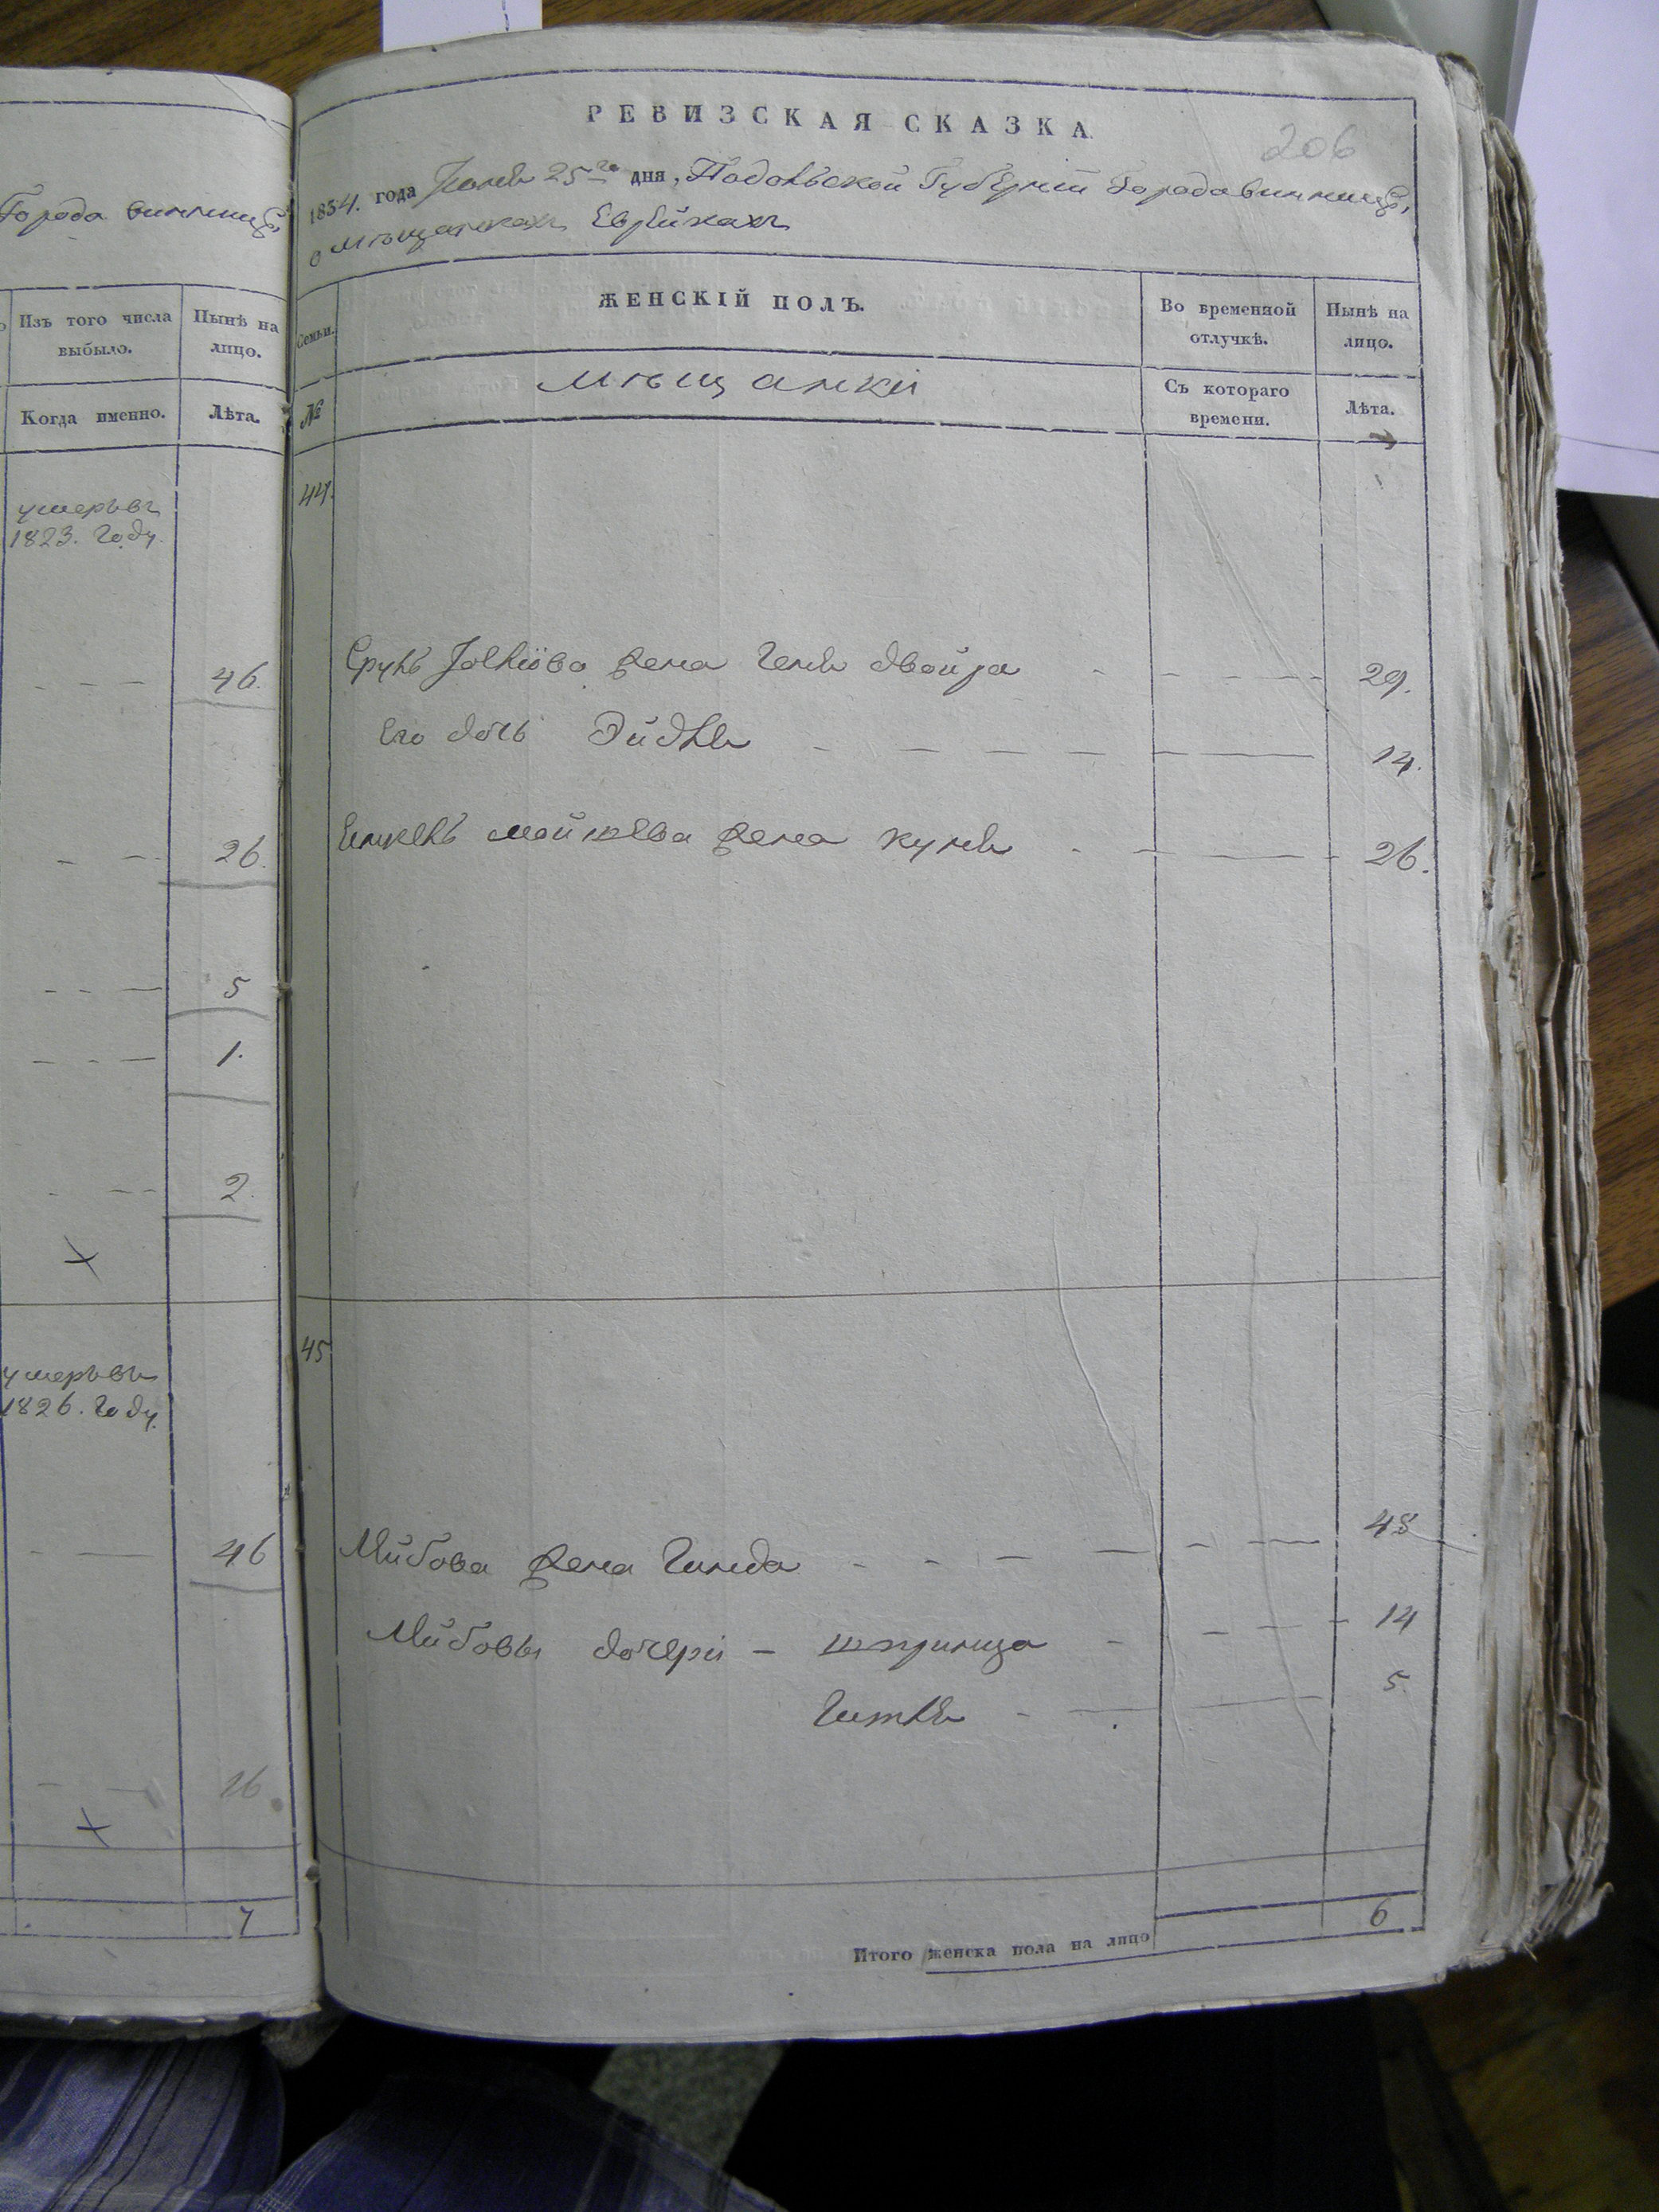 Города винницѣ,
Изъ того числа выбыло.
Нынѣ на лицо.
Когда именно.
Лѣта.
умеръ въ
1823. Году.
46.
26.
5
1.
2.
умеръ въ
1826. Году.
46
16
7
206
РЕВИЗСКАЯ СКАЗКА
1834. года Іюня 25го дня, Подольской Губерніи Города винницѣ,
о мѣщанкахъ Еврейкахъ
Семьи.
ЖЕНСКІЙ ПОЛЪ.
Во временной отлучкѣ.
Нынѣ на лицо.
№
мѣщанки
Съ котораго времени.
Лѣта.
44.
Сруль жена Геня двойра 29.
Его дочь Эйдля 14.
мошкова жена куня 26.
45
Лейбова жена Гинда 48
Лейбовы дочери - шпринца 14
Гитля 5.
6
Итого женска пола на лицо